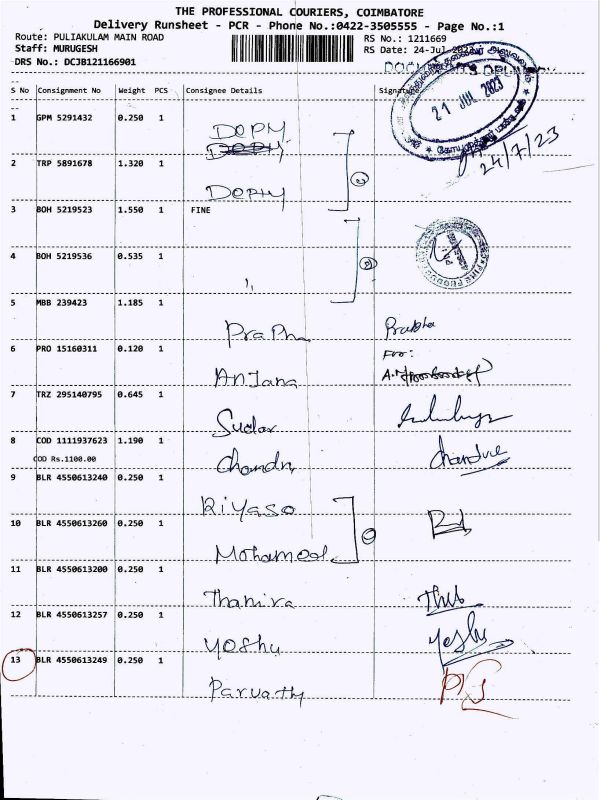 THE PROFESSIONAL COURIERS, COIMBATORE
Delivery Runsheet - PCR - Phone No.:0422-3505555 - Page No.:1
Route: PULIAKULAM MAIN ROAD RS No.: 1211669
Staff: MURUGESH RS Date: 24-Jul-2023
DRS No.: DCJB121166901
S No Consignment No Weight PCS Consignee Details Signature
21 JUL 2023
24/7/23
1 GPM 5291432 0.250 1
DOPM
2 TRP 5891678 1.320 1
DOPHY
3 BOH 5219523 1.550 1 FINE
4 BOH 5219536 0.535 1
"
5 MBB 239423 1.185 1
Praphs Prabha
6 PRO 15160311 0.120 1 For:
Anjana
7 TRZ 295140795 0.645 1
Sudar
8 COD 1111937623 1.190 1
COD Rs.1100.00
Chandru
9 BLR 4550613240 0.250 1
Riyaso
10 BLR 4550613260 0.250 1
Mohamed
11 BLR 4550613200 0.250 1
Thamira
12 BLR 4550613257 0.250 1
Yoshu Yeshu
13 BLR 4550613249 0.250 1
Parvathy